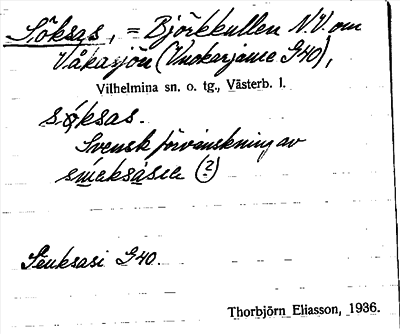 Söksas, = Björkkullen N.V. om
Våkasjön (Vuokarjaure G40),
Vilhelmina sn. o. tg., Västerb. l.
søksas.
Svensk förvanskning av
smeksasee (?)
Seuksasi G40.
Thorbjörn Eliasson, 1936.